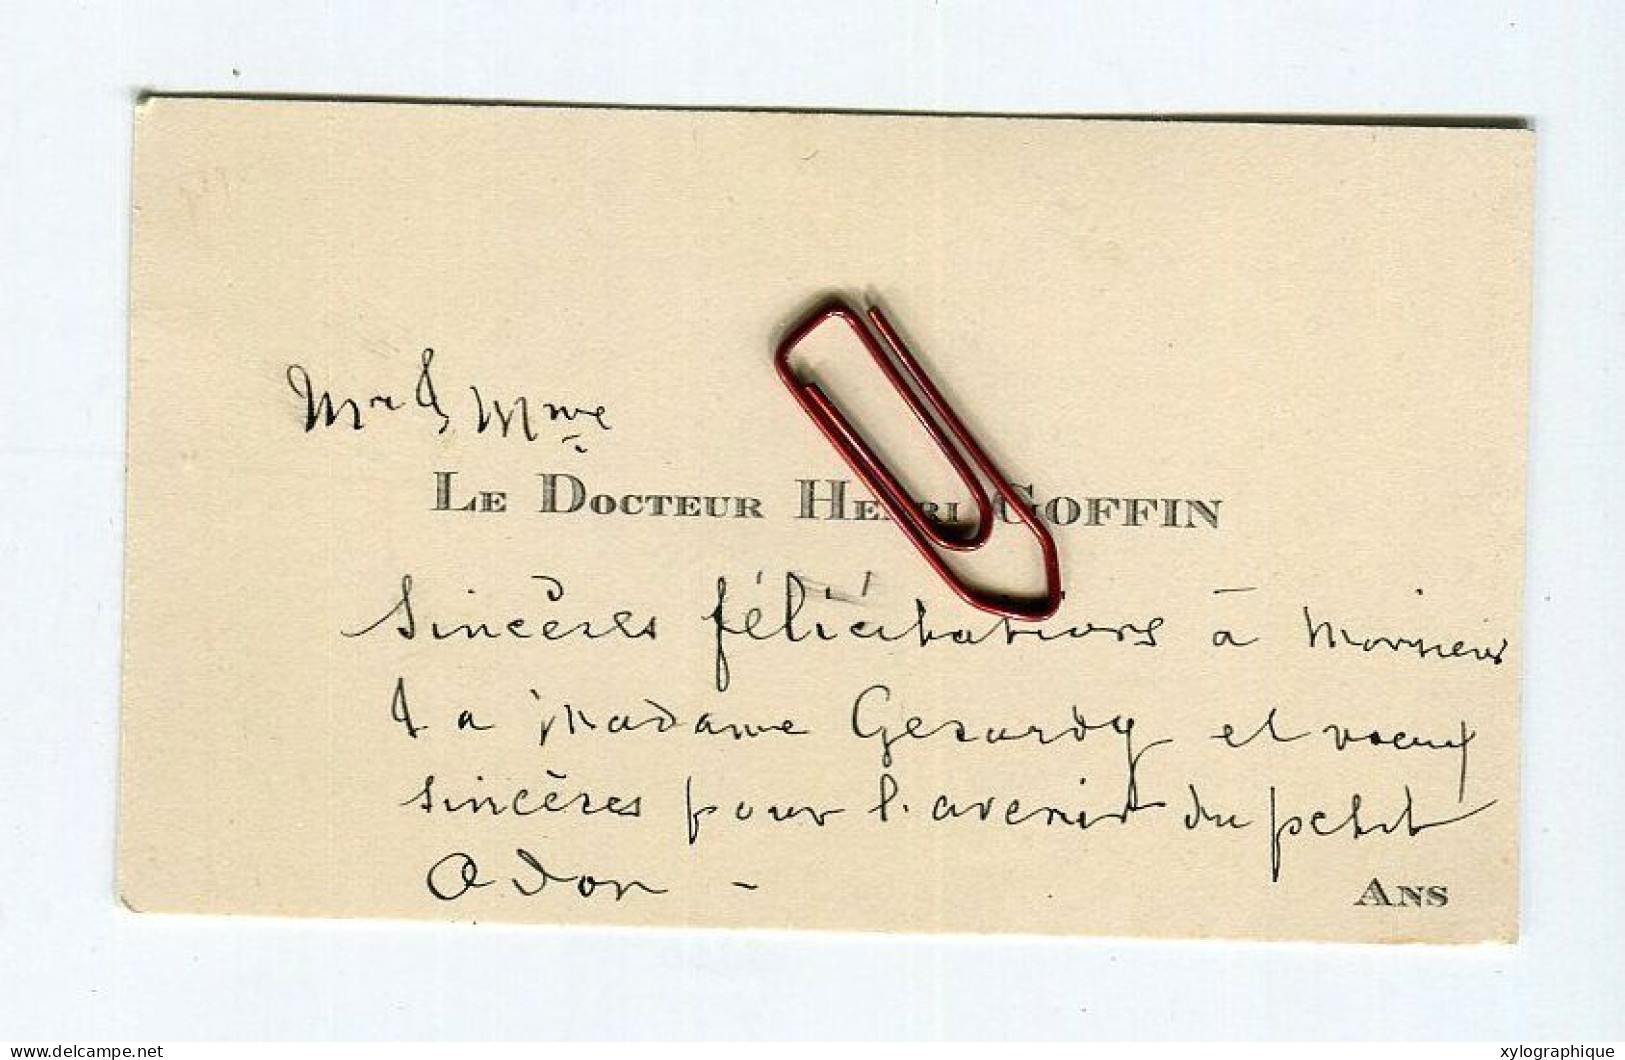 Mr & Mme
LE DOCTEUR HENRI GOFFIN
Sincères félicitations à Monsieur
& a Madame Gerardy et voeux
sincères pour l'avenir du petit
Odon -
ANS
www.delcampe.net
xylographique